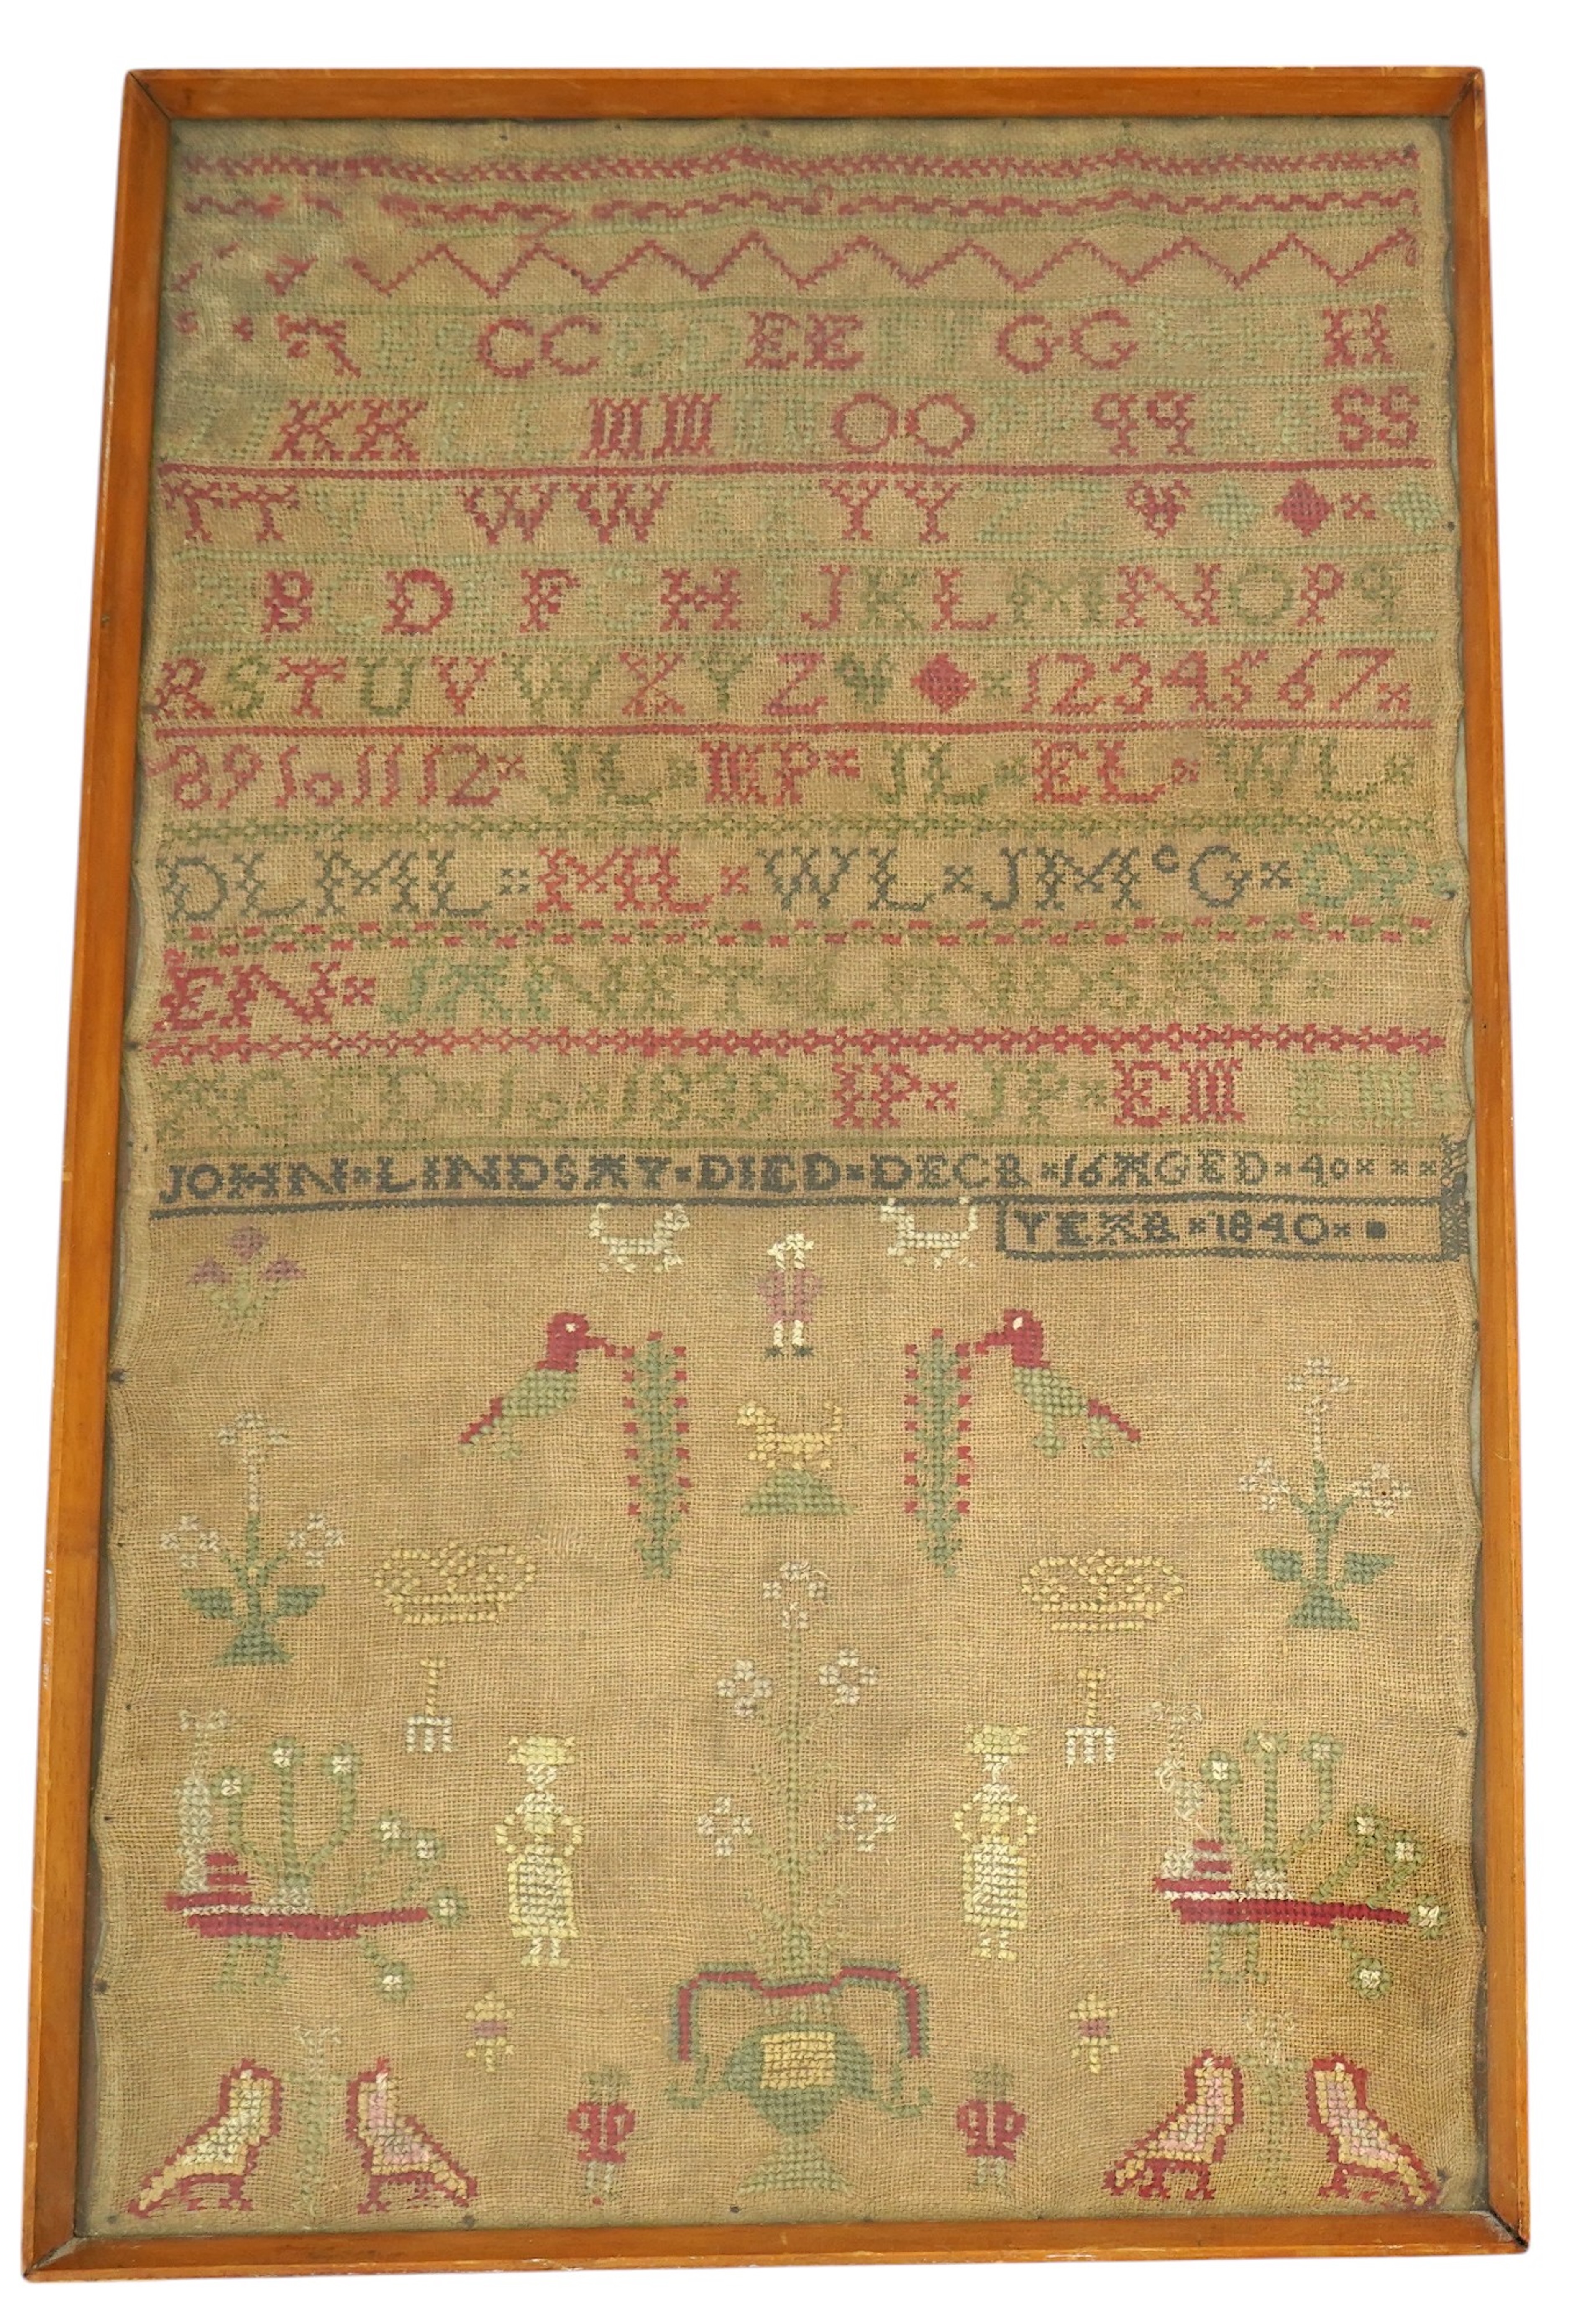 CC DD EE FF GG HH
KK LL MM NN OO PP qq RR SS
TT VV WW XX YY ZZ
A B C D E F G H I J K L M N O P q
R S T U V W X Y Z 1 2 3 4 5 6 7
8 9 10 11 12 JL MP JL EL WL
DL ML ML WL JMcG DP
EN JANET LINDSAY
AGED 10 1839 IP JP EM EM
JOHN LINDSAY DIED DECR 16 AGED 40
YEAR 1840